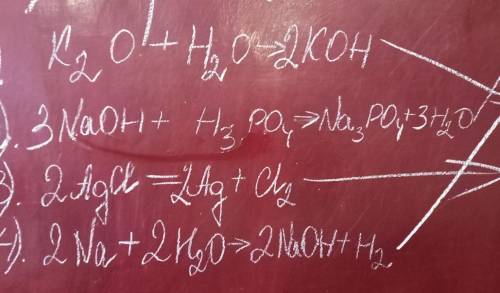 K₂O + H₂O → 2KOH
). 3NaOH + H₃PO₄ → Na₃PO₄ + 3H₂O
3). 2AgCl = 2Ag + Cl₂
4). 2Na + 2H₂O → 2NaOH + H₂